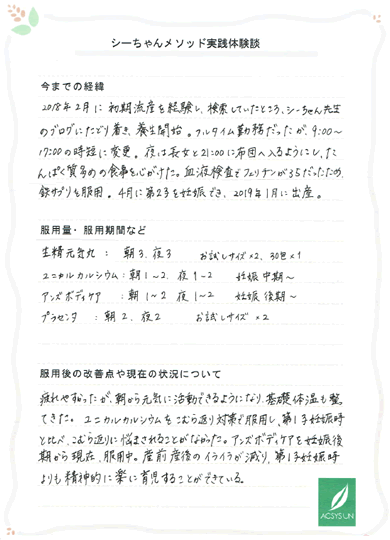 シーちゃんメソッド実践体験談
今までの経緯
2018年2月に初期流産を経験し、検索していたところ、シーちゃん先生
のブログにたどり着き、養生開始。フルタイム勤務だったが、9:00〜
17:00の時短に変更。夜は長女と21:00に布団へ入るようにし、たん
ぱく質多めの食事を心がけた。血液検査でフェリチンが35だったため、
鉄サプリを服用。4月に第2子を妊娠でき、2019年1月に出産。
服用量・服用期間など
生精元気丸 : 朝3、夜3 お試しサイズ×2、30包×1
ユニカルカルシウム : 朝1〜2、夜1〜2 妊娠中期〜
アンズボディケア : 朝1〜2 夜1〜2 妊娠後期〜
プラセンタ : 朝2、夜2 お試しサイズ×2
服用後の改善点や現在の状況について
疲れやすかったが、朝から元気に活動できるようになり、基礎体温も整っ
てきた。ユニカルカルシウムをこむら返り対策で服用し、第1子妊娠時
と比べ、こむら返りに悩まされることがなかった。アンズボディケアを妊娠後
期から現在、服用中。産前産後のイライラが減り、第1子妊娠時
よりも精神的に楽に育児することができている。
ACSYS UN